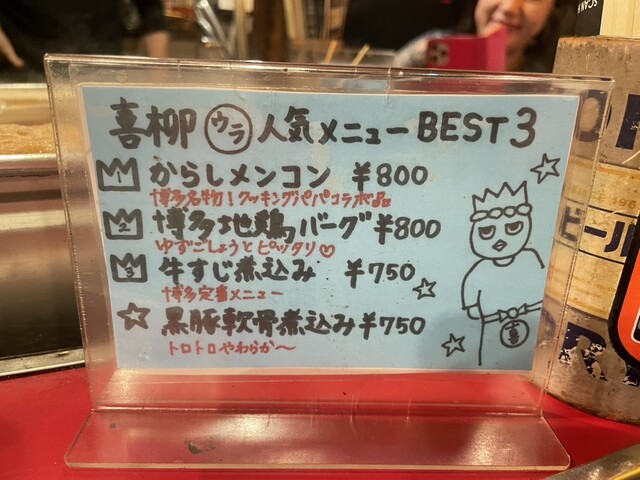 喜柳 ウラ 人気メニューBEST3
1 からしメンコン ¥800
博多名物!クッキングパパコラボ品
2 博多地鶏バーグ ¥800
ゆずごしょうとピッタリ♡
3 牛すじ煮込み ¥750
博多定番メニュー
☆ 黒豚軟骨煮込み ¥750
トロトロやわらか〜
喜
ビール